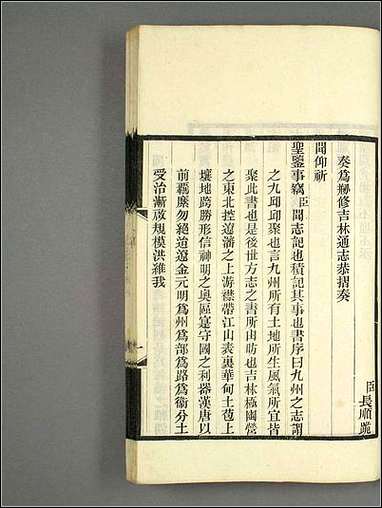 臣長順跪
奏爲纂修吉林通志恭摺奏
聞仰祈
聖鑒事竊臣聞志記也積記其事也書序曰九州之志謂
之九邱邱聚也言九州所有土地所生風氣所宜皆
聚此書也是後世方志之書所由昉也吉林極幽營
之東北控遼瀋之上游襟帶江山表裏華甸土苞上
壤地跨勝形信神明之奧區寔守國之利器漢唐以
前羈縻勿絕迨遼金元明爲州爲部爲路爲衞分土
受治漸啟規模洪維我